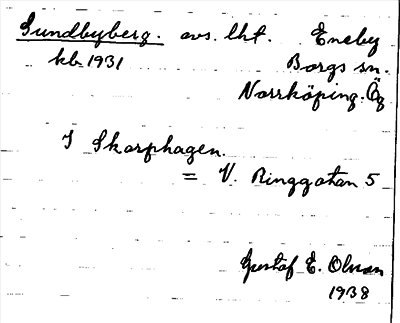 Sundbyberg. avs. lht. Eneby
kb. 1931 Borgs sn.
Norrköping. Ög
I Skarphagen.
= V. Ringgatan 5
Gustaf E. Olsson
1938